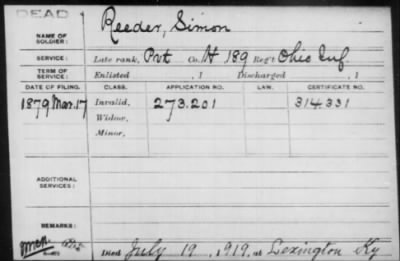 DEAD
NAME OF SOLDIER: Reeder, Simon
SERVICE: Late rank, Pvt Co. H 189 Reg't Ohio Inf.
TERM OF SERVICE: Enlisted , 1 Discharged , 1
DATE OF FILING. CLASS. APPLICATION NO. LAW. CERTIFICATE NO.
1879 Mar. 17 Invalid, 273.201 314.331
Widow,
Minor,
ADDITIONAL SERVICES:
REMARKS:
Died July 19, 1919, at Lexington Ky